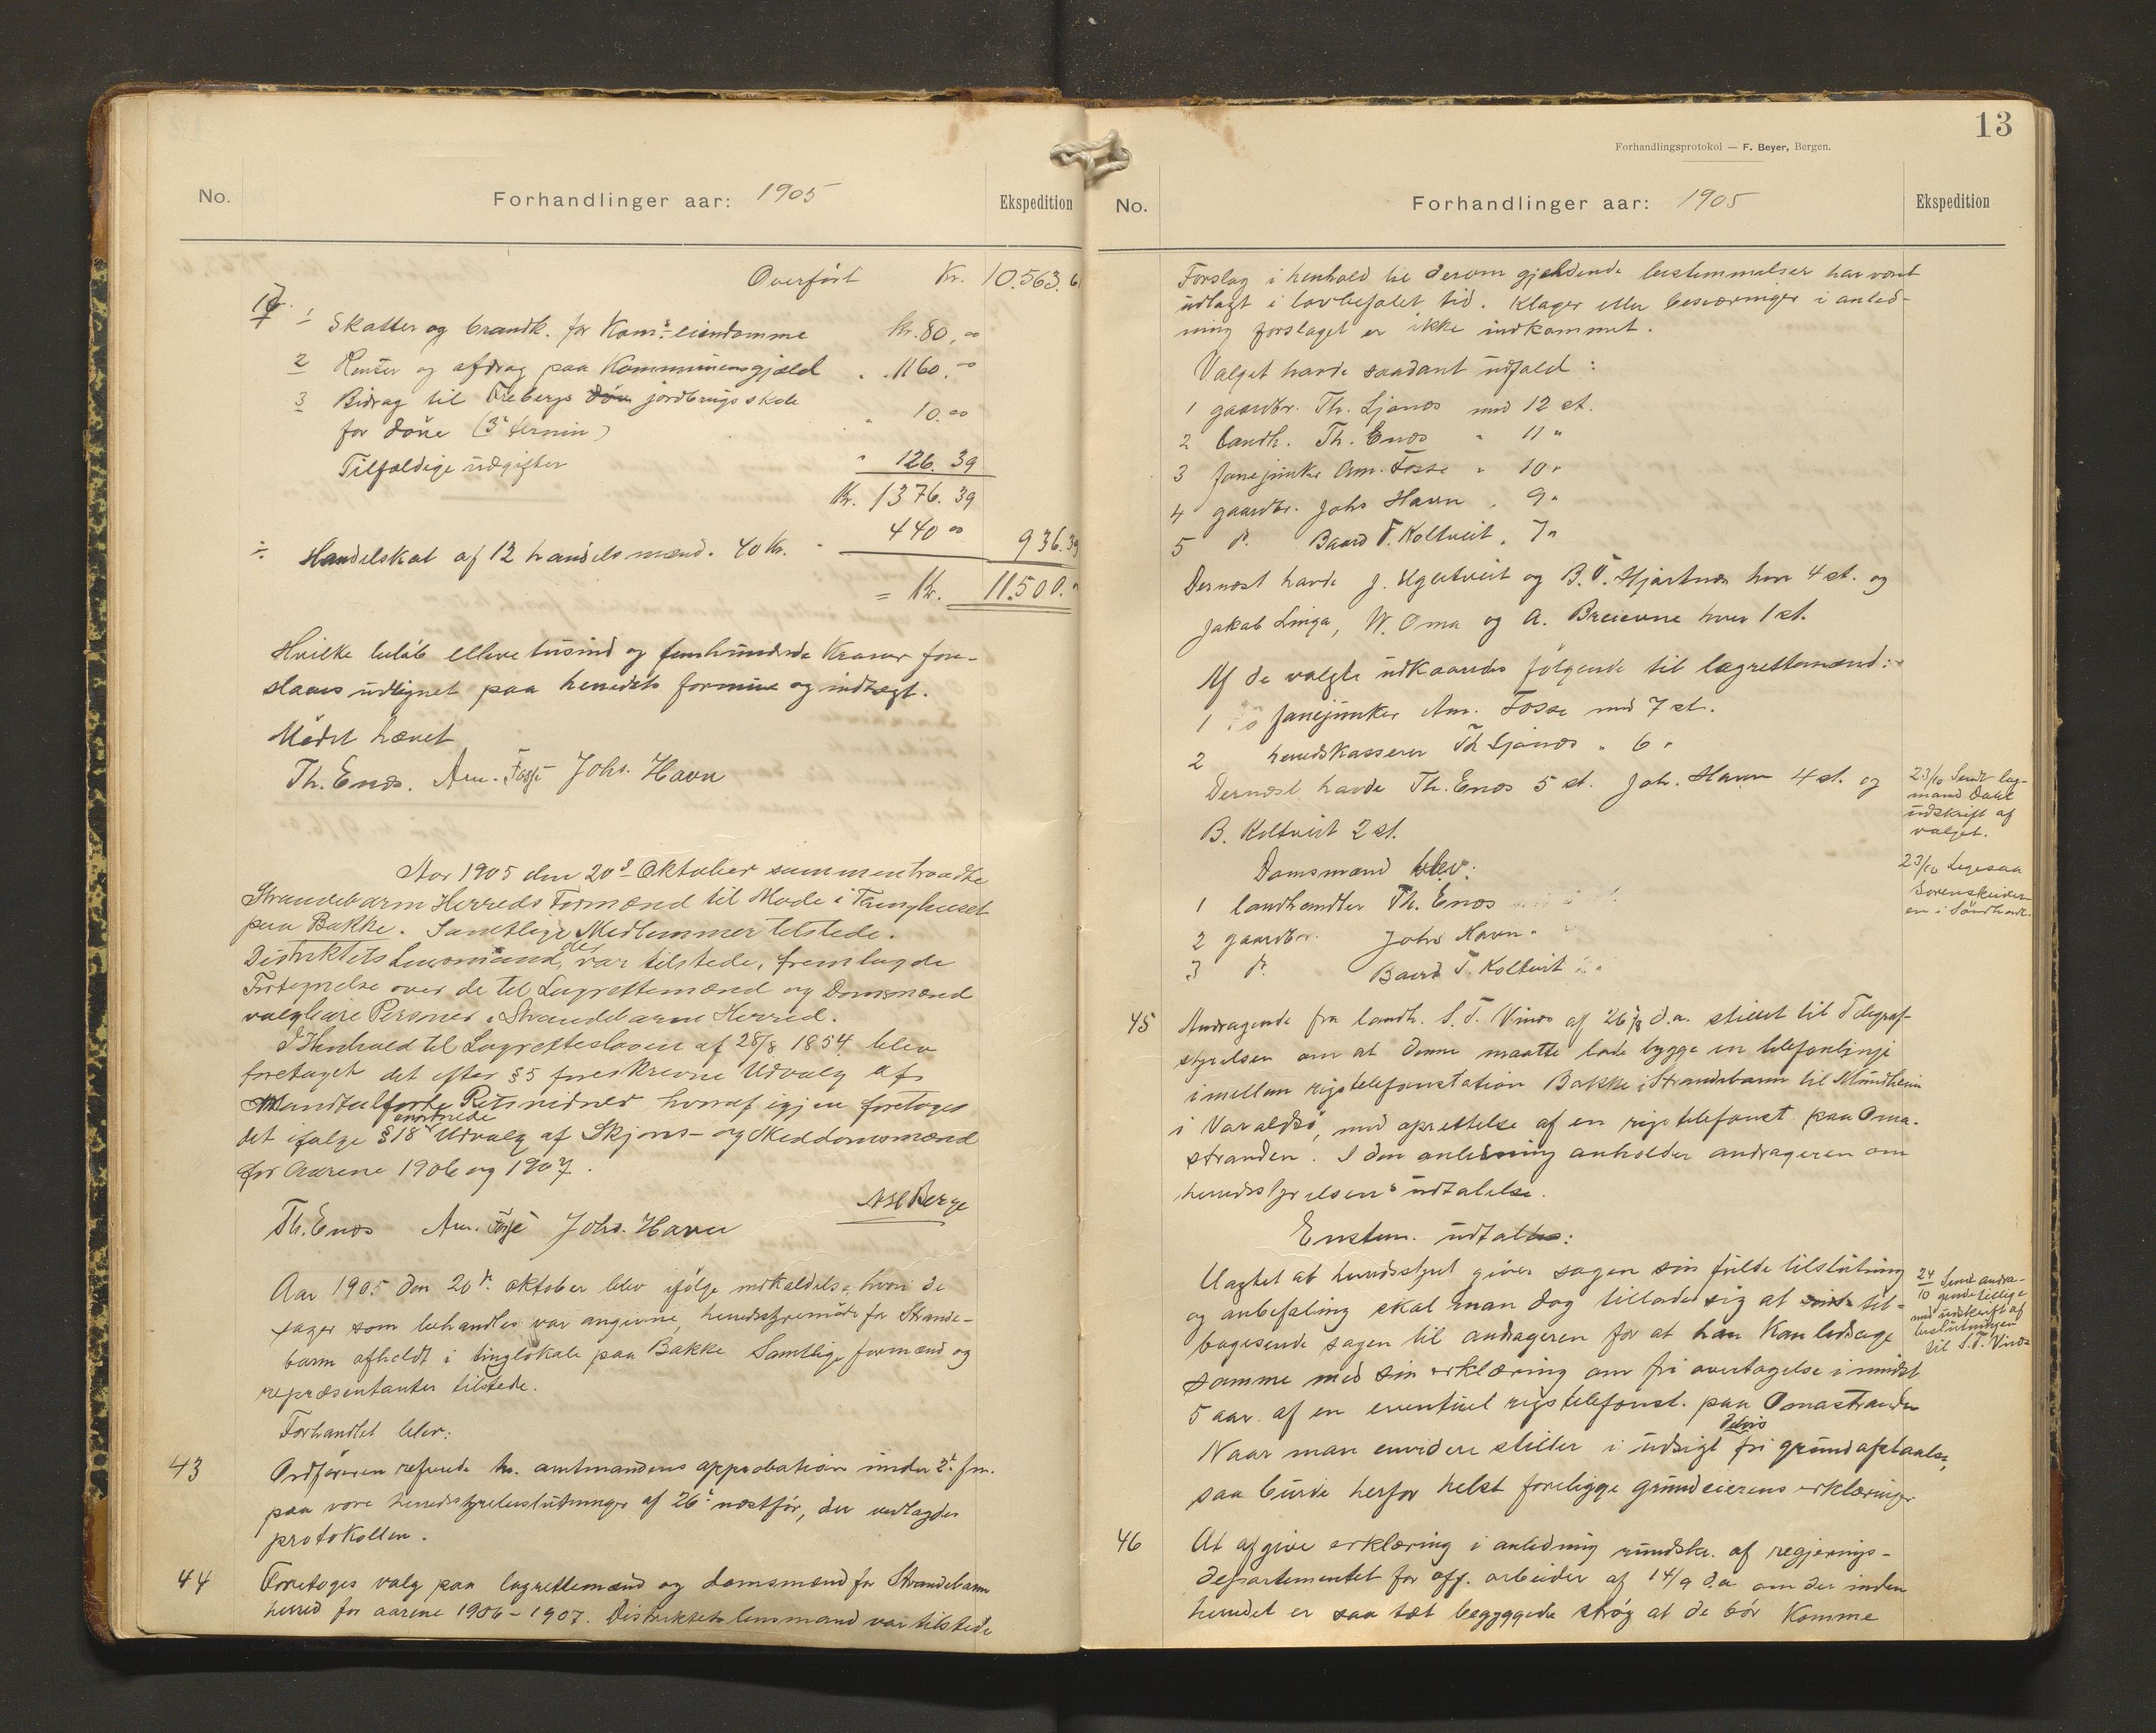 No.
Forhandlinger aar: 1905
Ekspedition
Overført Kr. 10.563.61
1 Skatter og brandk. for Koms eiendomme Kr. 80,00
2 Renter og afdrag paa Kommunens gjæld " 1160.00
3 Bidrag til Trebergs jordbrugsskole
for døve (3die termin) " 10.00
Tilfældige udgifter " 126.39
Kr. 1376.39
÷ Handelskat af 12 handelsmænd. 40 Kr. - 440 00 936.39
= Kr. 11.500.
Hvilke beløb elleve tusind og femhundrede Kroner fore-
slaaes udlignet paa herredets formue og indtægt.
Mødet hævet
Th. Enæs. Am. Fosse Johs. Havn
Aar 1905 den 20de Oktober sammentraadte
Strandebarm Herreds Formænd til Møde i Tinghuset
paa Bakke. Samtlige Medlemmer tilstede.
Distriktets Lensmand, der var tilstede, fremlagde
Fortegnelse over de til Lagrettemænd og Domsmænd
valgbare Personer i Strandebarm Herred.
I Henhold til Lagretteloven af 28/8 1854 blev
foretaget det efter § 5 foreskrevne Udvalg af
Mandtalførte Retsvidner, hvoraf igjen foretoges
det ifølge § 18 anordnede Udvalg af Skjøns- og Meddomsmænd
for Aarene 1906 og 1907.
NHBerge
Th. Enæs Am. Fosse Johs. Havn
Aar 1905 den 20de oktober blev ifølge indkaldelse, hvori de
sager som behandles var angivne, herredsstyremøde for Strande-
barm afholdt i tinglokale paa Bakke. Samtlige formænd og
repræsentanter tilstede.
Forhandlet blev:
43 Ordføreren refererede hr. amtmandens approbation under 2de fm.
paa vore herredsstyrebeslutninger af 26de næstfør, der vedlagdes
protokollen.
44 Foretoges valg paa lagrettemænd og domsmænd for Strandebarm
herred for aarene 1906-1907. Distriktets lensmand var tilstede
13
Forhandlingsprotokol — F. Beyer, Bergen.
No.
Forhandlinger aar: 1905
Ekspedition
Forslag i henhold til derom gjeldende bestemmelser har været
udlagt i lovbefalet tid. Klager eller besværinger i anled-
ning forslaget er ikke indkommet.
Valget havde saadant udfald:
1 gaardbr. Th. Ljones med 12 st.
2 landh. Th. Enæs " 11 "
3 fanejunker Am. Fosse " 10 "
4 gaardbr. Johs Havn " 9 "
5 do. Baard T. Koltveit " 7 "
Dernæst havde J. Ugeltveit og B. T. Hjartnæs hver 4 st. og
Jakob Linga, W. Oma og A. Breievne hver 1 st.
Af de valgte udkaaredes følgende til lagrettemænd:
1 fanejunker Am. Fosse med 7 st.
2 herredskasserer Th Ljones " 6 "
Dernæst havde Th. Enæs 5 st. Joh. Havn 4 st. og
B. Koltveit 2 st.
23/10 Sendt lag-
mand Dahl
udskrift af
valget.
23/10 Ligesaa
Sorenskriver-
en i Søndhordl.
Domsmænd blev:
1 landhandler Th. Enæs
2 gaardbr. Johs Havn
3 do. Baard T. Koltveit
45 Andragende fra landh. S. T. Vinæs af 26/8 d.a. stilet til Telegraf-
styrelsen om at denne maatte lade bygge en telefonlinje
imellem rigstelefonstation Bakke i Strandebarm til Mundheim
i Varaldsø, med oprettelse af en rigstelefonst. paa Oma-
stranden. I den anledning anholder andrageren om
herredsstyrelsens udtalelse.
Enstem. udtaltes:
Uagtet at herredsstyret giver sagen sin fulde tilslutning
og anbefaling skal man dog tillade sig at til-
bagesende sagen til andrageren for at han kan ledsage
samme med sin erklæring om fri overtagelse i mindst
5 aar af en eventuel rigstelefonst. paa Omastranden
Naar man envidere stiller i udsigt delvis fri grundafstaaelse,
saa burde herfor helst foreligge grundeierens erklæringer
24/10 Sendt andra-
gende tillige
med udskrift af
beslutningen
til S. T. Vinæs
46 At afgive erklæring i anledning rundskr. af regjerings-
departementet for off. arbeider af 14/9 d.a om der inden
herredet er saa tæt bebyggede strøg at de bør komme